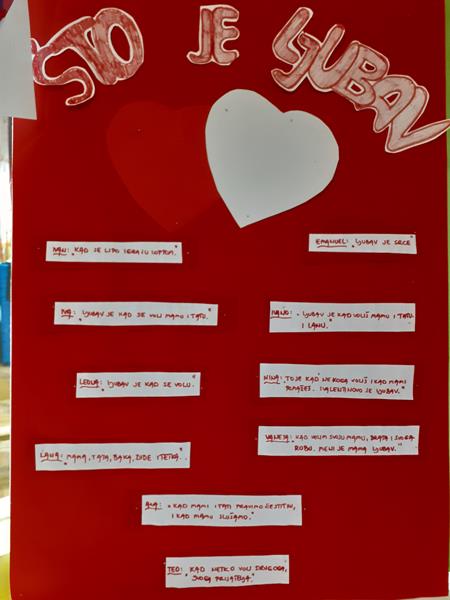 ŠTO JE LJUBAV
IVAN: "KAD SE LIPO IGRAJU LOPTOM."
EMANUEL: "LJUBAV JE SRCE"
IVA: "LJUBAV JE KAD SE VOLI MAMU I TATU."
NANO: "LJUBAV JE KAD VOLIŠ MAMU I TATU
I LANU."
LEONA: "LJUBAV JE KAD SE VOLU.
NINA: "TO JE KAD NEKOGA VOLIŠ I KAD MAMI
POMAŽEŠ. I VALENTINOVO JE LJUBAV."
VANESA: "KAD VOLIM SVOJU MAMU, BRATA I SVOGA
ROBU. MENI JE MAMA LJUBAV."
LANA: "MAMA, TATA, BAKA, DIDE I TETKA."
ANA: "KAD MAMI I TATI PRAVIMO ČESTITKU,
I KAD MAMU SLUŠAMO."
TEO: "KAD NETKO VOLI DRUGOGA,
SVOGA PRIJATELJA."